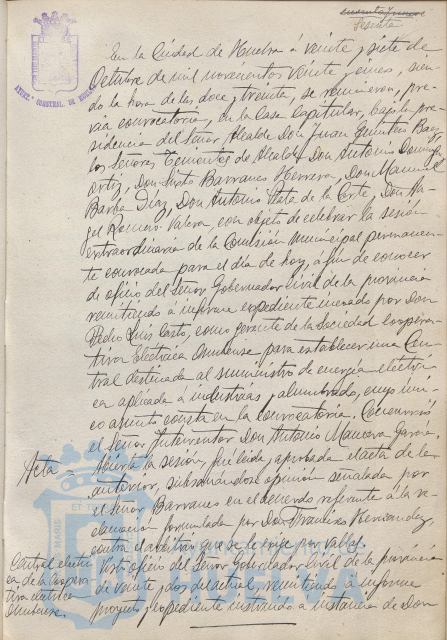 Sesenta
AYUNT. CONSTNAL. DE HUELVA
En la Ciudad de Huelva á veinte y siete de
Octubre de mil novecientos veinte y cinco, sien-
do la hora de las doce y treinta, se reunieron, pre-
via convocatoria, en la Casa Capitular, bajo la pre-
sidencia del Señor Alcalde Don Juan Quintero Baez
los Señores Tenientes de Alcalde Don Antonio Domínguez
Ortiz, Don Sixto Barranco Herrera, Don Manuel
Barba Diaz, Don Antonio Mata de la Corte, Don An-
gel Romero Valera, con objeto de celebrar la sesión
extraordinaria de la Comisión Municipal permanen-
te convocada para el día de hoy, á fin de conocer
de oficio del Señor Gobernador Civil de la provincia
remitiendo á informe expediente incoado por Don
Pedro Luis Casto, como gerente de la Sociedad Coopera-
tiva Eléctrica Onubense para establecer una Cen-
tral destinada al suministro de energía eléctri-
ca aplicada á industrias y alumbrado, cuyo úni-
co asunto consta en la convocatoria. Concurrió
el Señor Interventor Don Antonio Mancera García.
Acta
Abierta la sesión, fué leída y aprobada el acta de la
anterior, subsanándose opinión señalada por
el Señor Barranco en el acuerdo referente á la re-
clamación formulada por Don Francisco Hernandez,
contra el arbitrio que se le exige por vallas.
Central eléctri-
ca de la Coopera-
tiva eléctrica
Onubense.
Visto oficio del Señor Gobernador Civil de la provincia
de veinte y dos del actual, remitiendo á informe
proyecto y expediente instruido á instancia de Don